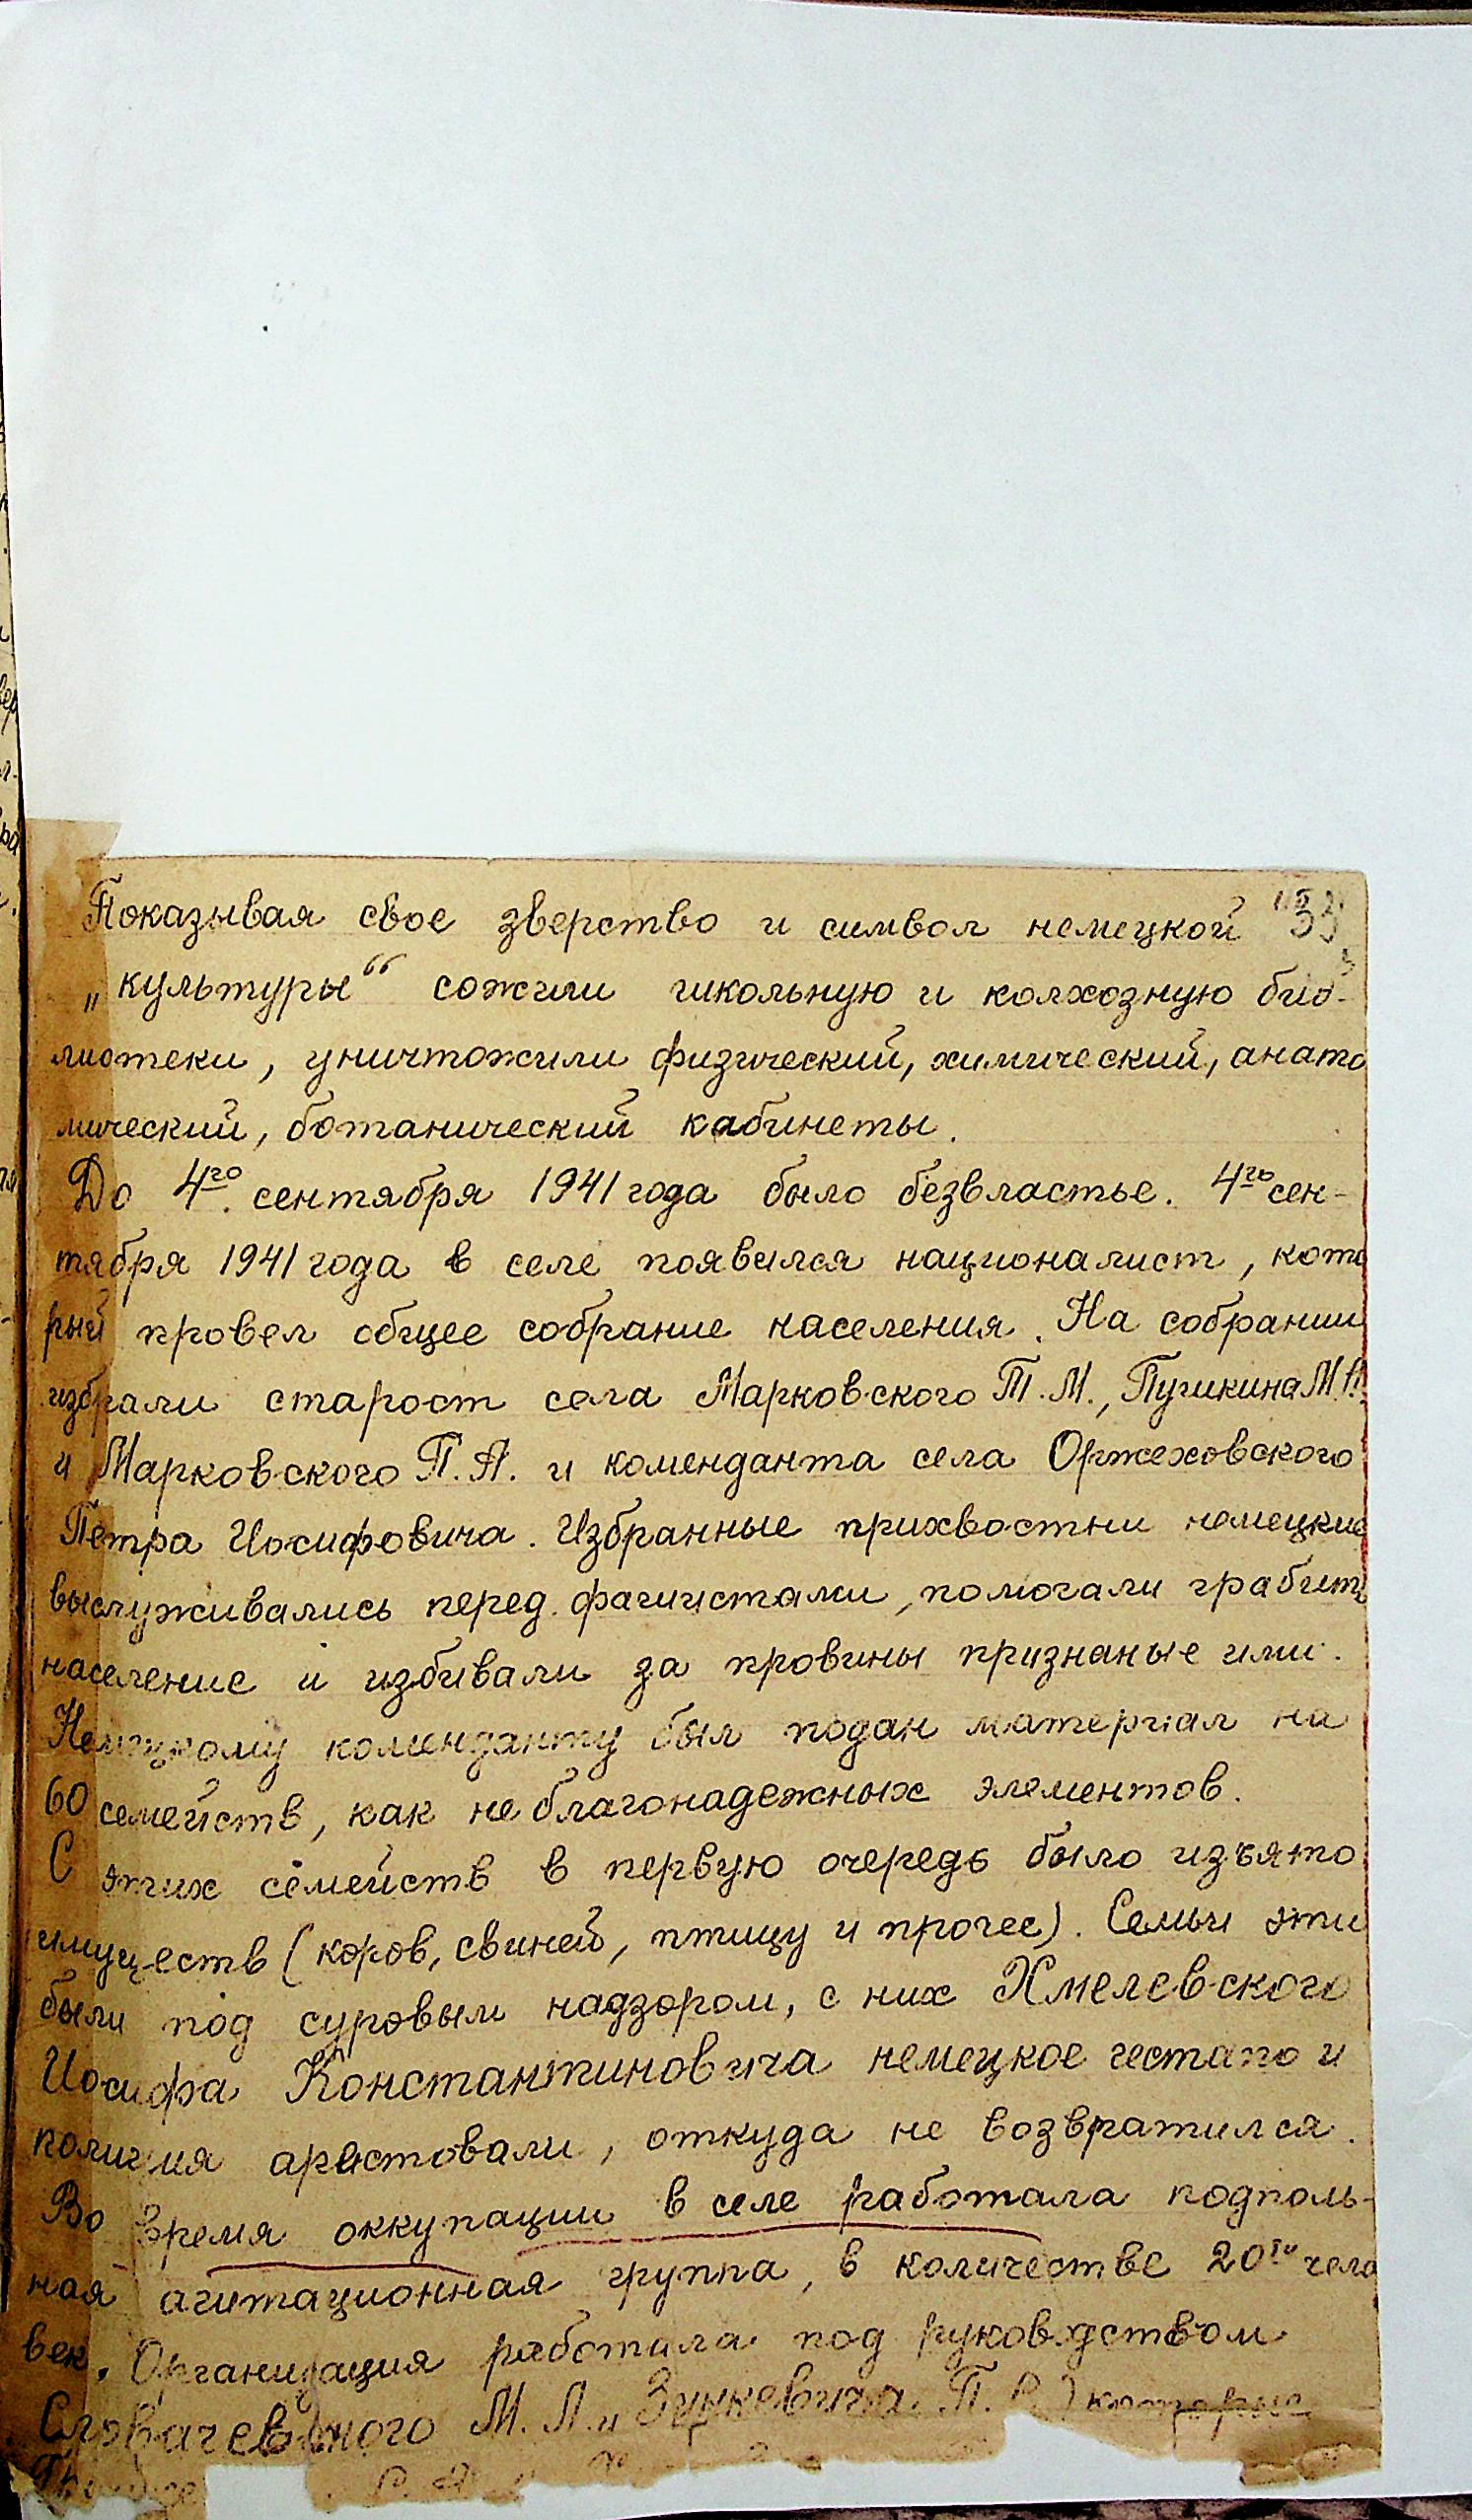 Показывая свое зверство и символ немецкой
„культуры“ сожгли школьную и колхозную биб-
лиотеки, уничтожили физический, химический, анато
мический, ботанический кабинеты.
До 4го сентября 1941 года было безвластье. 4го сен-
тября 1941 года в селе появился националист, кото
рый провел общее собрание населения. На собрании
избрали старост села Марковского Т.М., Пушкина М.
и Марковского П.А. и коменданта села Оржеховского
Петра Иосифовича. Избранные прихвостни немецкие
выслуживались перед фашистами, помогали грабить
население и избивали за провины признаные ими.
Немецкому коменданту был подан материал на
60 семейств, как не благонадежных элементов.
С этих семейств в первую очередь было изъято
имуществ (коров, свиней, птицу и прочее). Семьи эти
были под суровым надзором, с них Хмелевского
Иосифа Константиновича немецкое гестапо и
полиция арестовали, откуда не возвратился.
Во время оккупации в селе работала подполь-
ная агитационная группа, в количестве 20ти чело
век. Организация работала под руководством
Словачевского М.Л. и Зинкевича П. которые